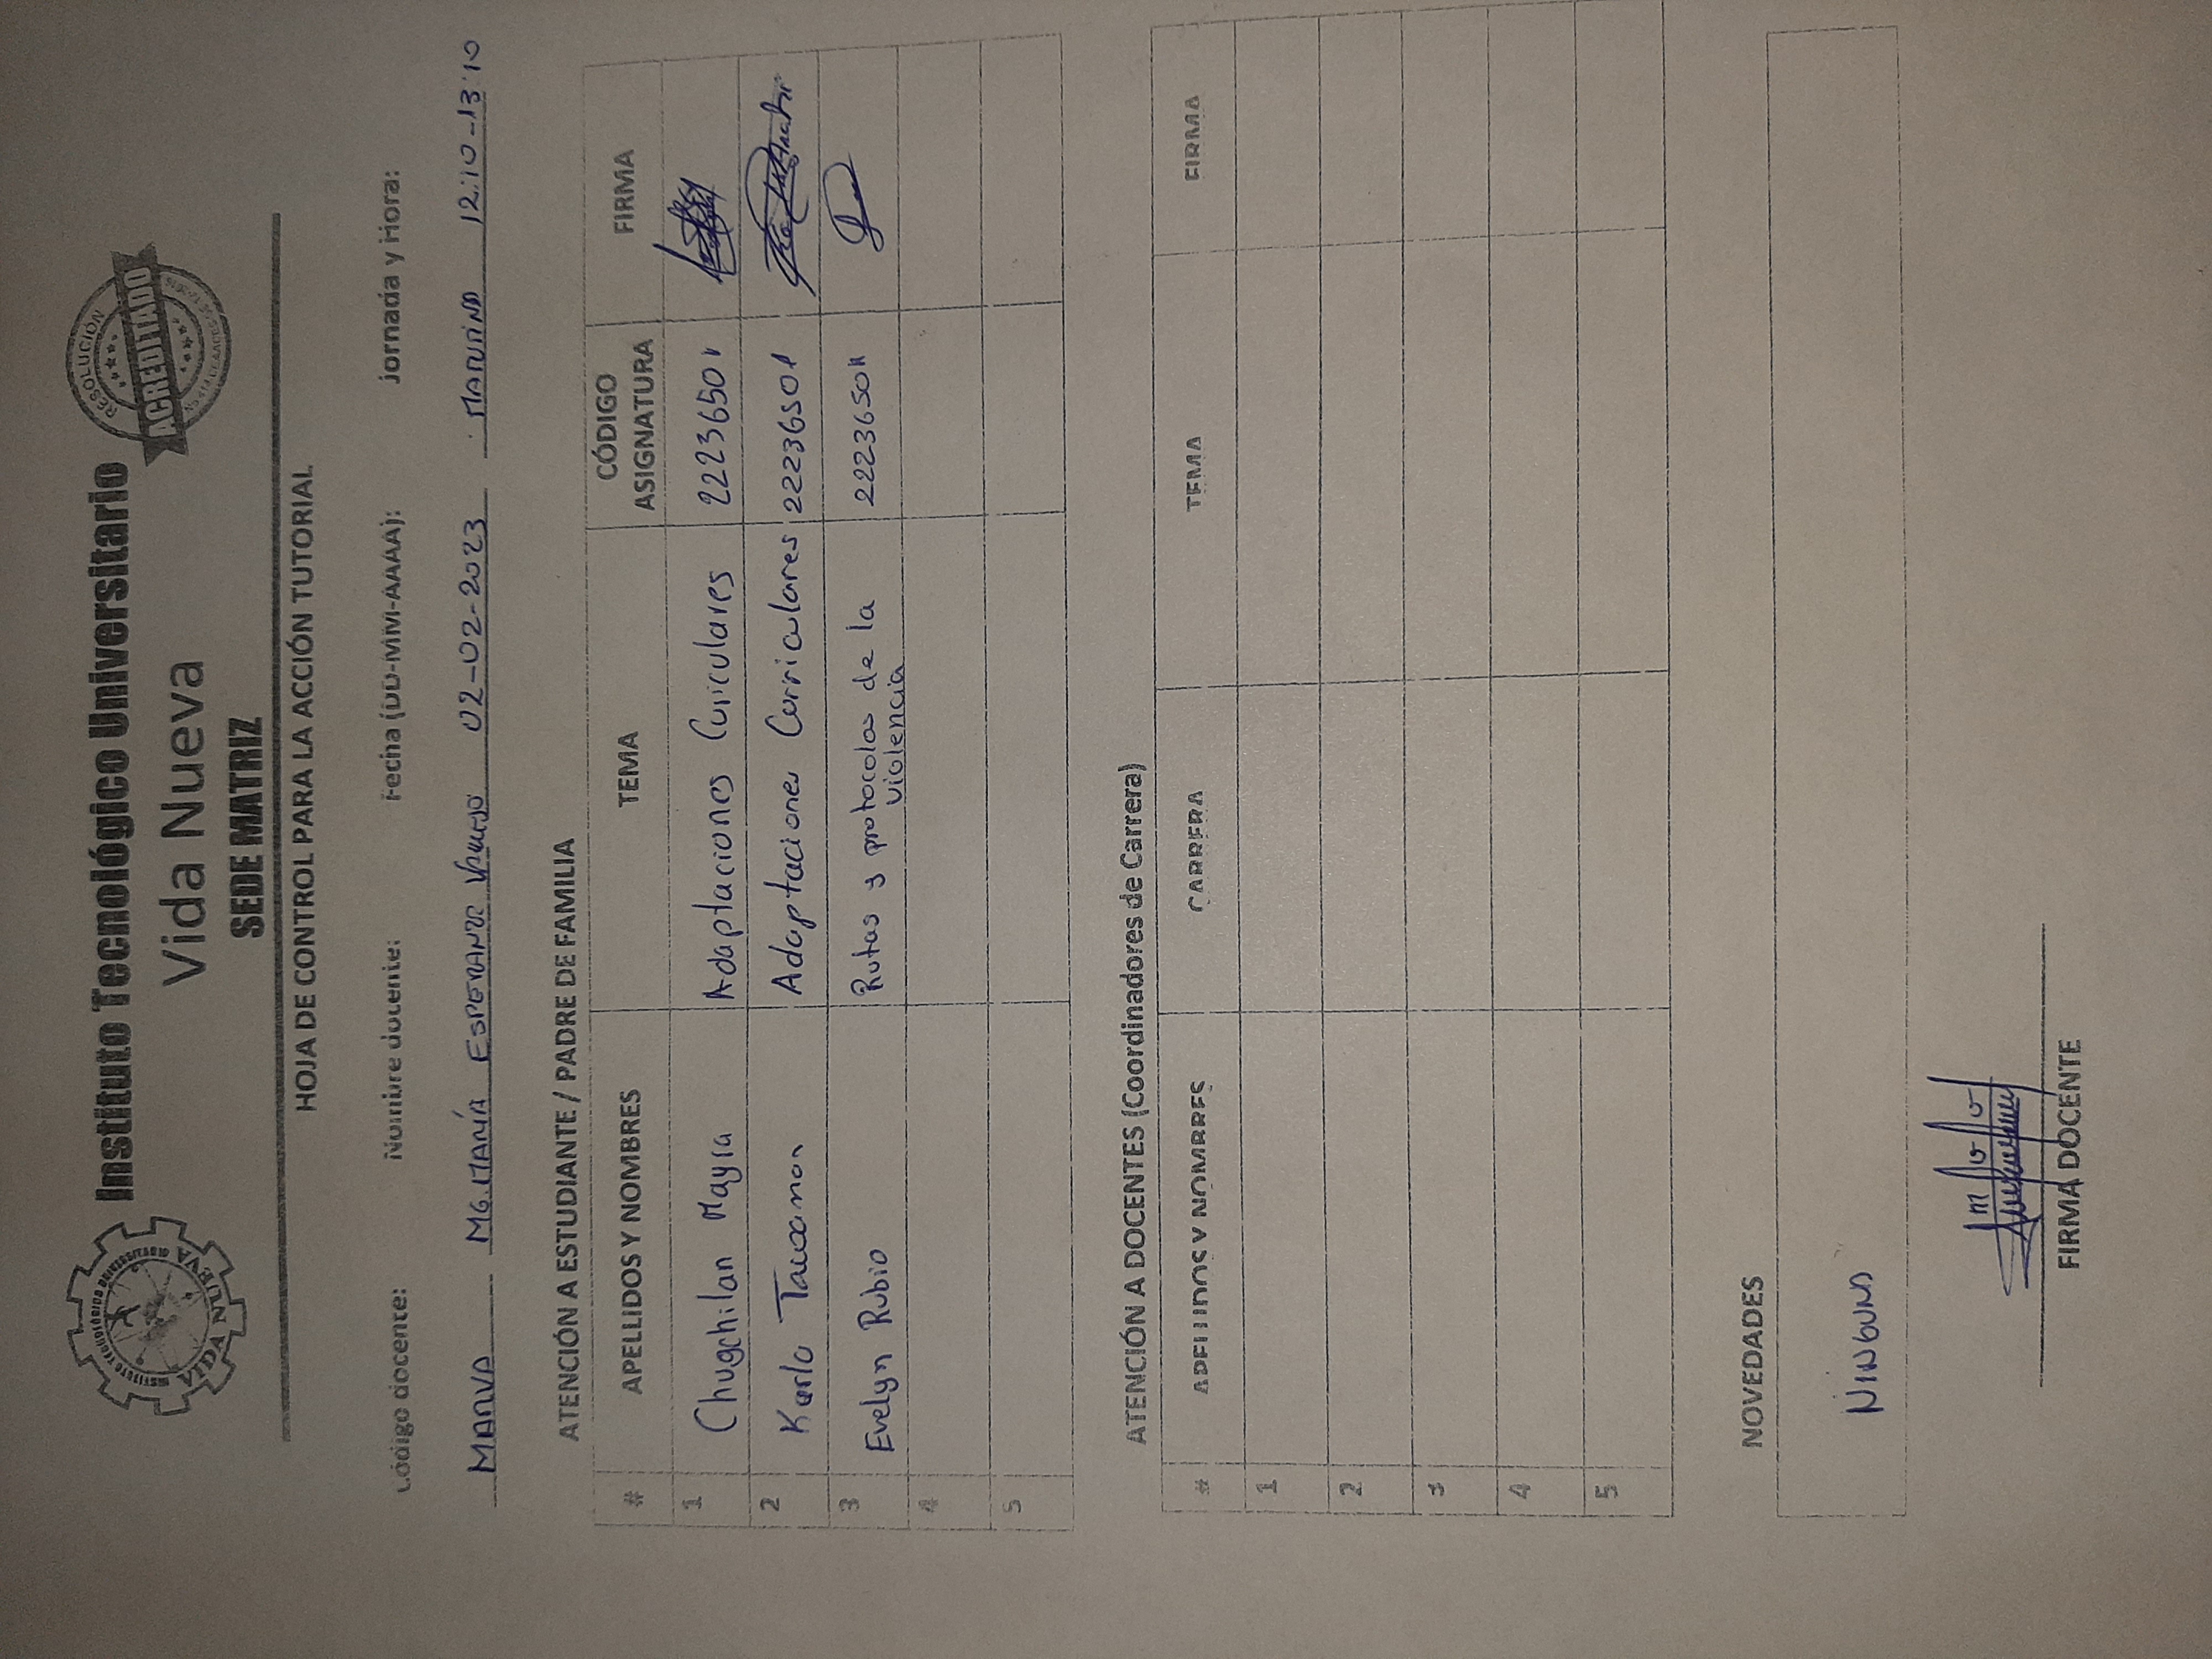 INSTITUTO TECNOLÓGICO UNIVERSITARIO
VIDA NUEVA
Instituto Tecnológico Universitario
Vida Nueva
SEDE MATRIZ
RESOLUCIÓN
ACREDITADO
HOJA DE CONTROL PARA LA ACCIÓN TUTORIAL
Código docente: Nombre docente: Fecha (DD-MM-AAAA): Jornada y Hora:
MARVA MG. MARÍA ESPERANZA VALLEJO 02-02-2023 MATUTINA 12:10-13:10
ATENCIÓN A ESTUDIANTE / PADRE DE FAMILIA
# APELLIDOS Y NOMBRES TEMA CÓDIGO ASIGNATURA FIRMA
1 Chugchilan Mayra Adaptaciones Curiculares
2 Karla Tacoaman Adaptaciones Curriculares
3 Evelyn Rubio Rutas y protocolos de la
violencia
4
5
ATENCIÓN A DOCENTES (Coordinadores de Carrera)
# APELLIDOS Y NOMBRES CARRERA TEMA FIRMA
1
2
3
4
5
NOVEDADES
NINGUNA
FIRMA DOCENTE